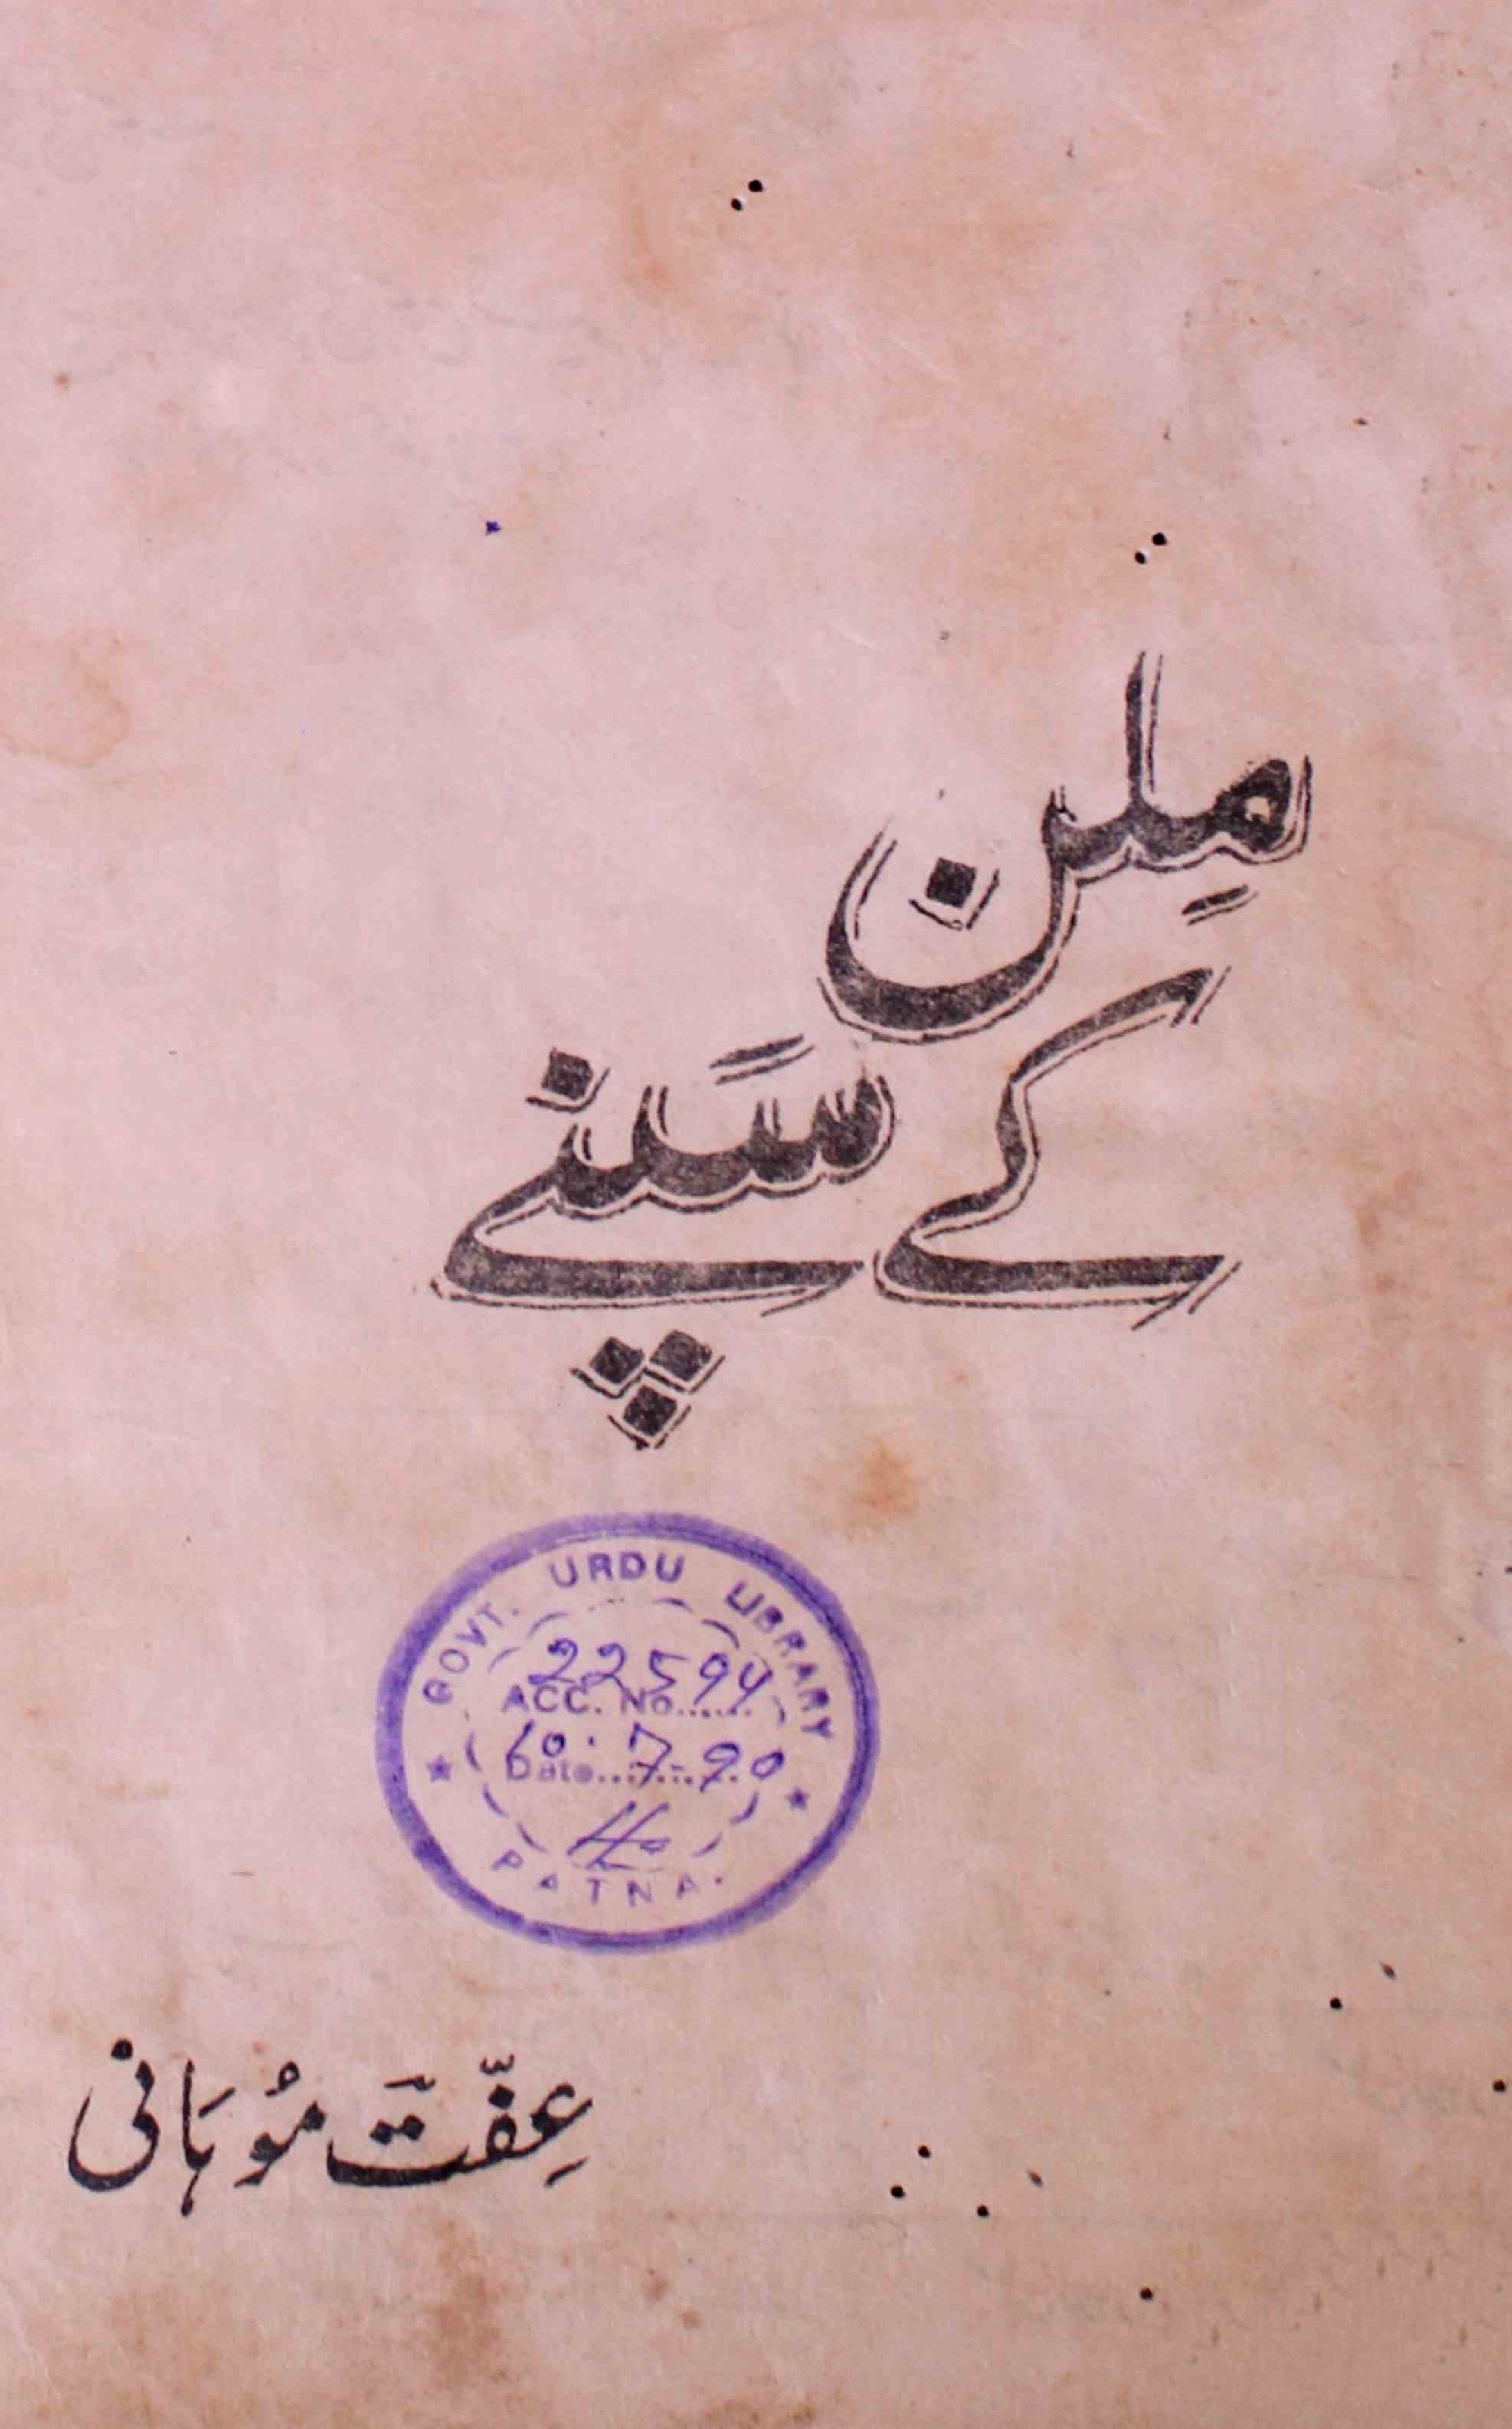 مِلن
کے سَپنے
GOVT. URDU LIBRARY
22594
ACC. No.......
10.7-90
Date............
PATNA.
عِفّتَ مُوہَانی